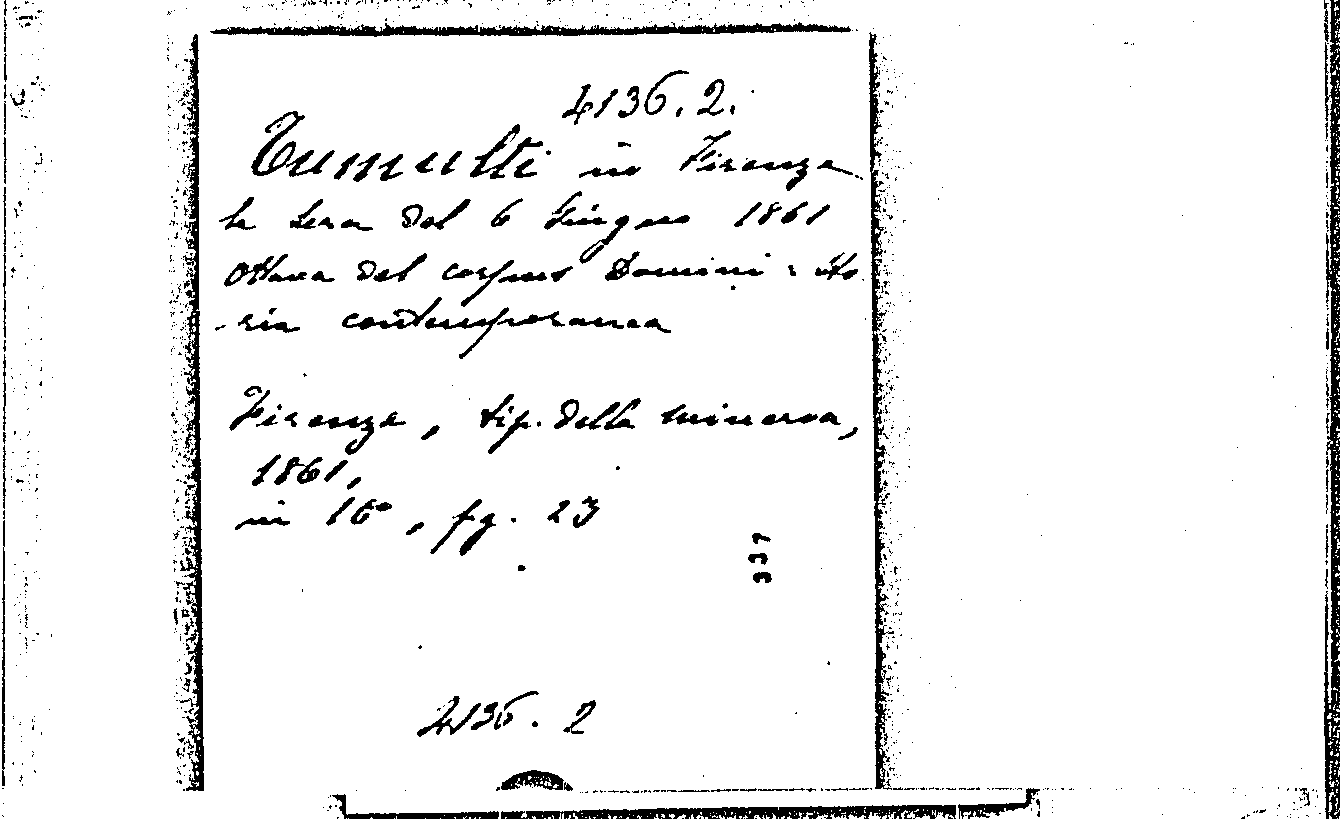 4136.2.
Tumulti in Firenze
la sera del 6 Giugno 1861
Ottava del corpus Domini : sto
ria contemporanea
Firenze, tip. della minerva,
1861,
in 16°, pg. 23
337
4136. 2